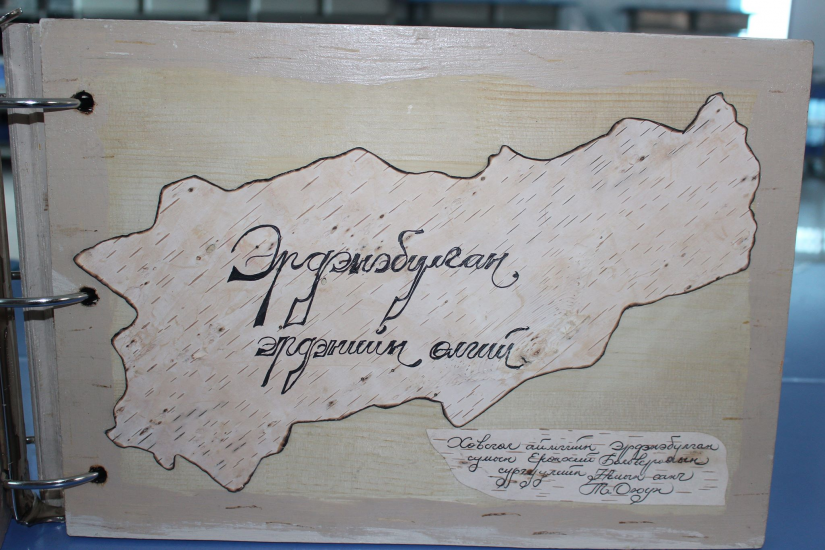 Эрдэнэбулган
эрдэнийн өлгий
Хөвсгөл аймгийн Эрдэнэбулган
сумын Ерөнхий Боловсролын
сургуулийн